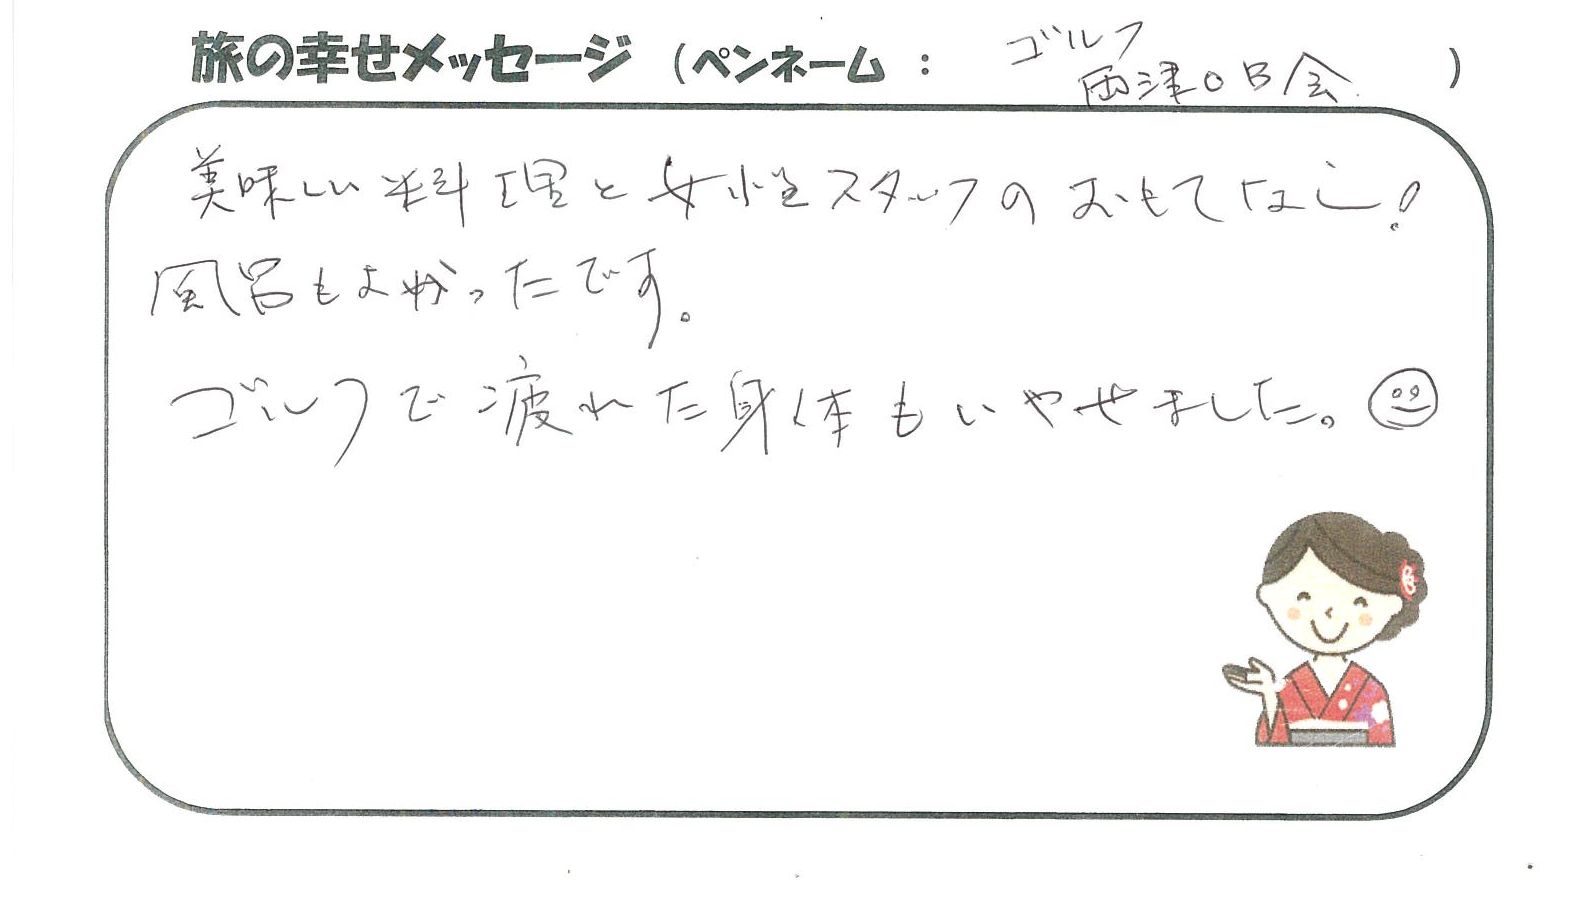 旅の幸せメッセージ (ペンネーム : ゴルフ
西津OB会 )
美味しい料理と女性スタッフのおもてなし!
風呂もよかったです。
ゴルフで疲れた身体もいやせました。